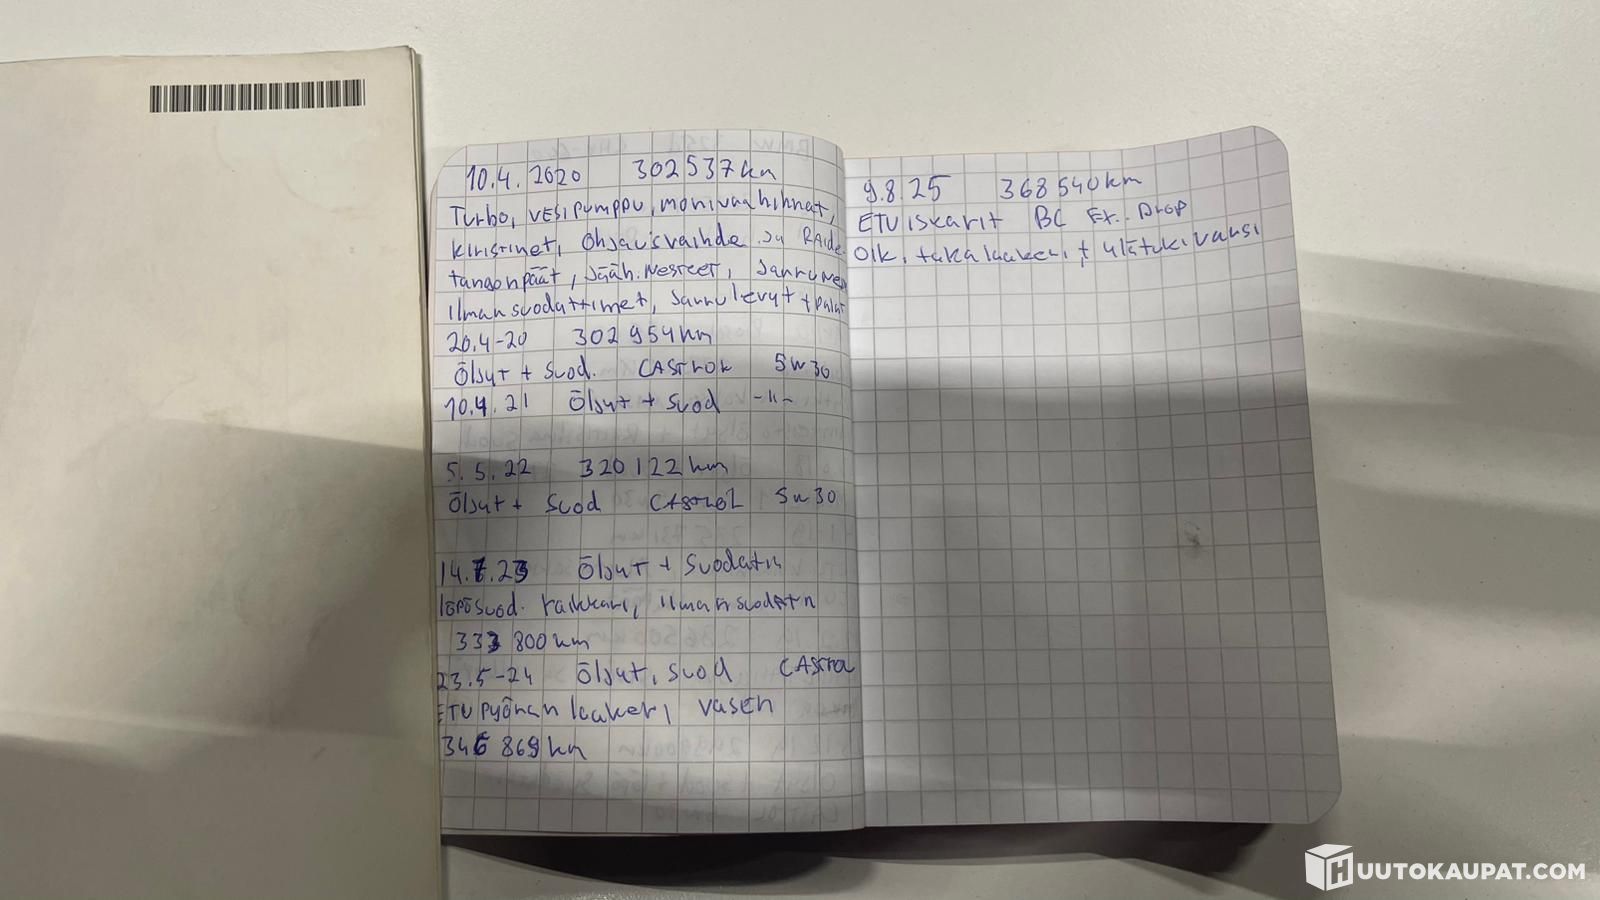 10.4. 2020 302537 km
Turbo, vesipumppu, moniurahihnat,
kiristimet, Ohjausvaihde ja Raide.
tangonpäät, Jääh. nesteet, Jarrunes
Ilmansuodattimet, Jarrulevyt + palat
20.4-20 302954 km
Öljyt + Suod. CASTROL 5w30
10.4.21 Öljyt + Suod -"-
5.5.22 320122 km
Öljyt + Suod CASTROL 5w30
14.7.23 Öljyt + Suodatin
Ilmansuodatin
333 800 km
23.5-24 Öljyt, Suod CAStrol
ETUpyörän laakeri vasen
346 869 km
9.8.25 368 540 km
ETUiskarit BC Ex. Drop
Oik. takalaakeri, + ylätukivarsi
HUUTOKAUPAT.COM